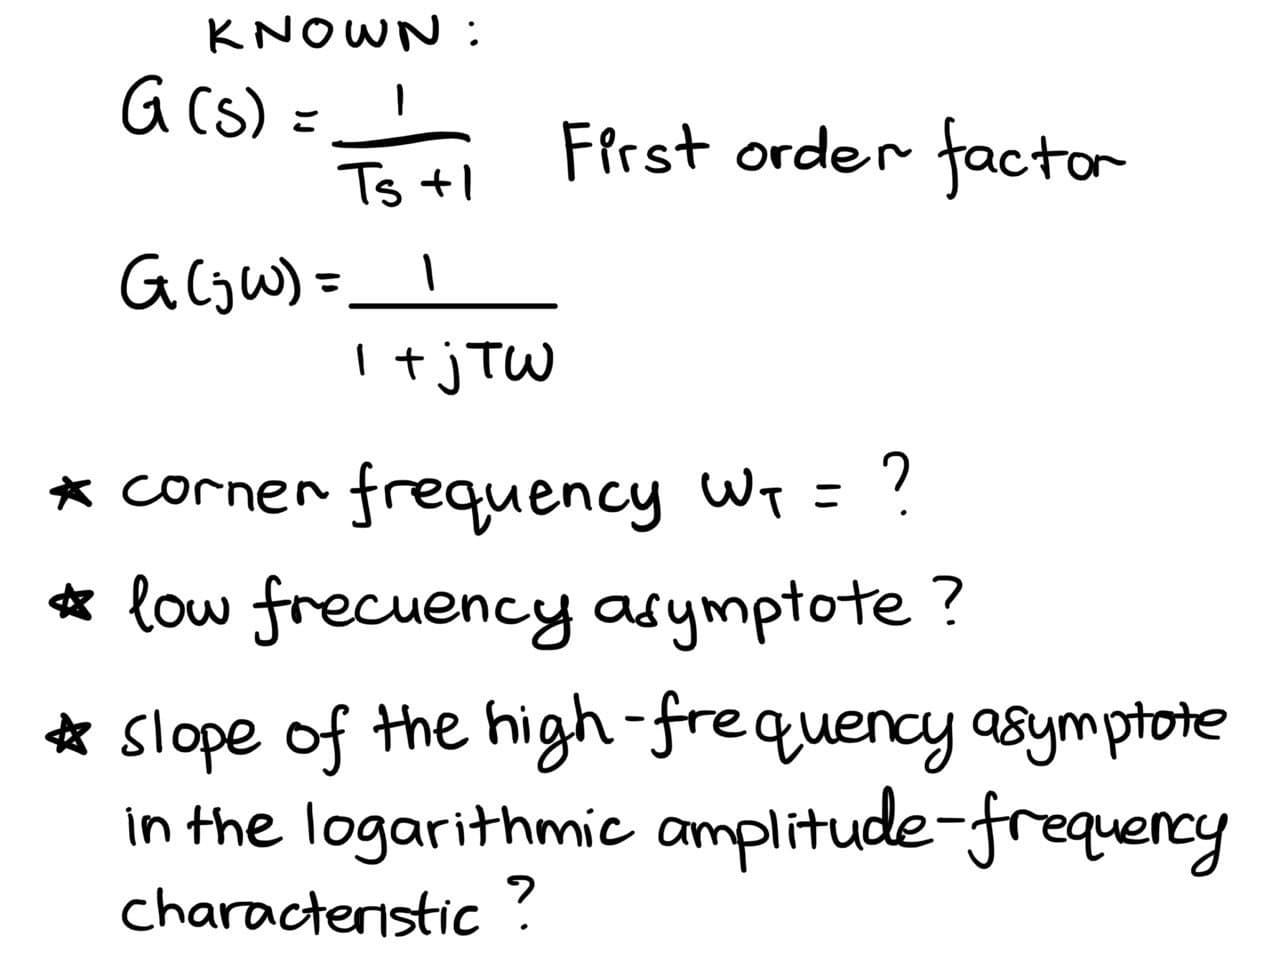 KNOWN:
G(s) = 1/(Ts+1) First order factor
G(jω) = 1/(1 + jTω)
★ corner frequency ωT = ?
★ low frecuency asymptote?
★ slope of the high-frequency asymptote
in the logarithmic amplitude-frequency
characteristic?